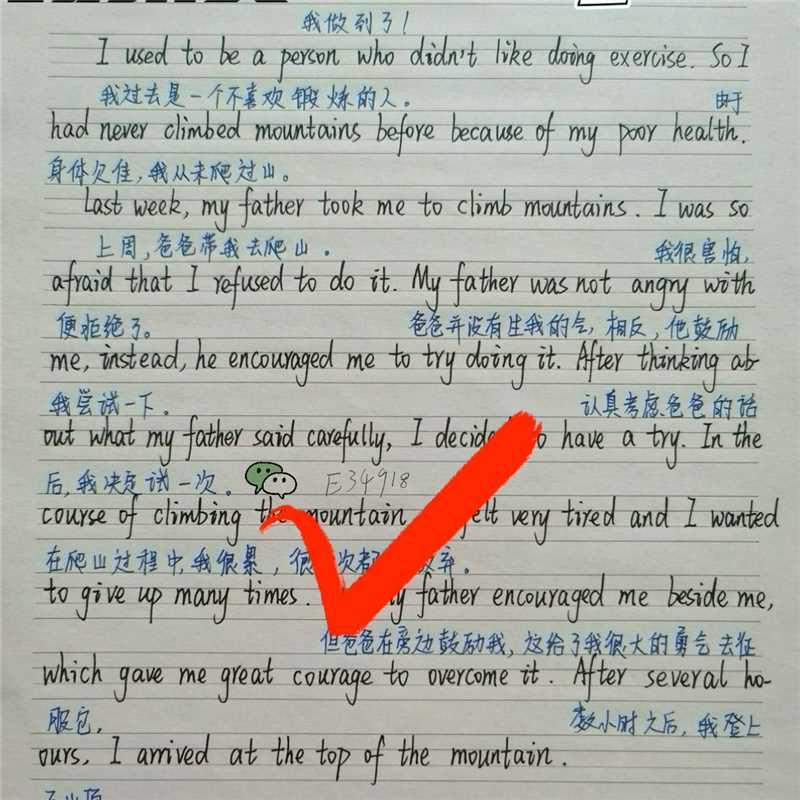 我做到了!
I used to be a person who didn't like doing exercise. So I
我过去是一个不喜欢锻炼的人。 由于
had never climbed mountains before because of my poor health.
身体欠佳,我从未爬过山。
Last week, my father took me to climb mountains. I was so
上周,爸爸带我去爬山。 我很害怕,
afraid that I refused to do it. My father was not angry with
便拒绝了。 爸爸并没有生我的气,相反,他鼓励
me, instead, he encouraged me to try doing it. After thinking ab-
我尝试一下。 认真考虑爸爸的话
out what my father said carefully, I decided to have a try. In the
后,我决定试一次。 E34918
course of climbing the mountain felt very tired and I wanted
在爬山过程中,我很累,很 次都 放弃。
to give up many times. my father encouraged me beside me,
但爸爸在旁边鼓励我,这给了我很大的勇气去征
which gave me great courage to overcome it. After several ho-
服它。 数小时之后,我登上
ours, I arrived at the top of the mountain.